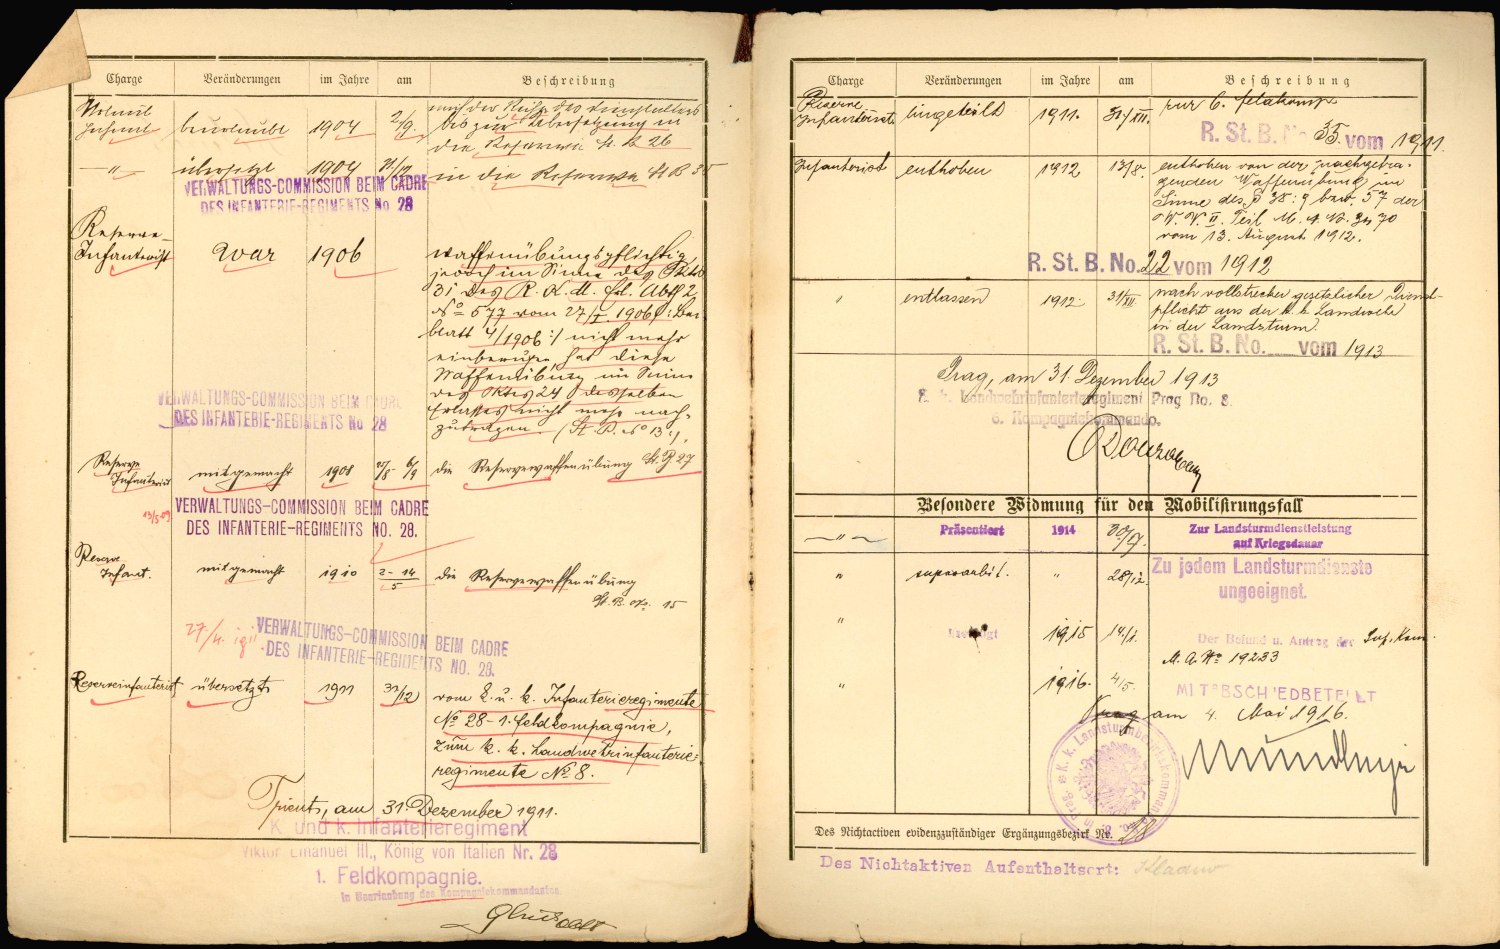 Charge Veränderungen im Jahre am Beschreibung
beurlaubt 1904 2/9. bis zur Übersetzung in
die Reserve St. B 26
—"— übersetzt 1904 31/12 in die Reserve St B 35
VERWALTUNGS-COMMISSION BEIM CADRE
DES INFANTERIE-REGIMENTS No 28
Reserve-
Infanterist War 1906 waffenübungspflichtig,
jedoch im Sinne des
31 des R. K. M. Erl. Abth 2
No 577 vom 27/I. 1906 /: Bei-
blatt 4/1906 :/ nicht mehr
einberufen hat diese
Waffenübung im Sinne
des Pktes 24 desselben
Erlasses nicht mehr nach-
zutragen. (St. B. No 13:/,
VERWALTUNGS-COMMISSION BEIM CADRE
DES INFANTERIE-REGIMENTS No 28
Reserve
Infanterist mitgemacht 1908 die Reservewaffenübung St. B 27
VERWALTUNGS-COMMISSION BEIM CADRE
DES INFANTERIE-REGIMENTS NO. 28.
Reserve
Infant. mitgemacht 1910 2-14/5 die Reservewaffenübung
St. B. No. 15
27/4. 1911
VERWALTUNGS-COMMISSION BEIM CADRE
DES INFANTERIE-REGIMENTS NO. 28.
Reserveinfanterist übersetzt 1911 31/12 vom k. u. k. Infanterieregimente
No 28 - 1. Feldkompagnie,
zum k. k. Landwehrinfanterie-
regimente No 8.
Trient, am 31. Dezember 1911.
K. und k. Infanterieregiment
Viktor Emanuel III., König von Italien Nr. 28
1. Feldkompagnie.
In Beurlaubung des Kompagniekommandanten.
Charge Veränderungen im Jahre am Beschreibung
Reserve
Infanterist eingeteilt 1911. 31/XII. zur 6. Feldkomp
R. St. B. No 35. vom 1911
Infanterist enthoben 1912 13/8. enthoben von der nachgetra-
genden Waffenübung im
Sinne des § 38:9 bzw. 57 der
W. V. II. Teil M. A. No. 70
vom 13. August 1912.
R. St. B. No. 22 vom 1912
" entlassen 1912. 31/XII. nach vollstreckter gesetzlicher Dienst-
pflicht aus der k. k. Landwehr
in den Landsturm.
R. St. B. No. vom 1913
Prag, am 31. Dezember 1913
k. k. Landwehrinfanterieregiment Prag No. 8.
6. Kompagniekommando.
Besondere Widmung für den Mobilisirungsfall
—"— Präsentiert 1914 Zur Landsturmdienstleistung
auf Kriegsdauer
" superarbit. " 28/12. Zu jedem Landsturmdienste
ungeeignet.
" 1915 14/1. Der Befund u. Antrag der Sup. Kom.
M. A. No 19233
" 1916. 4/5. MIT ABSCHIED BETEILT
Prag am 4. Mai 1916.
Des Nichtactiven evidenzzuständiger Ergänzungsbezirk Nr. 28
Des Nichtaktiven Aufenthaltsort: Kladno